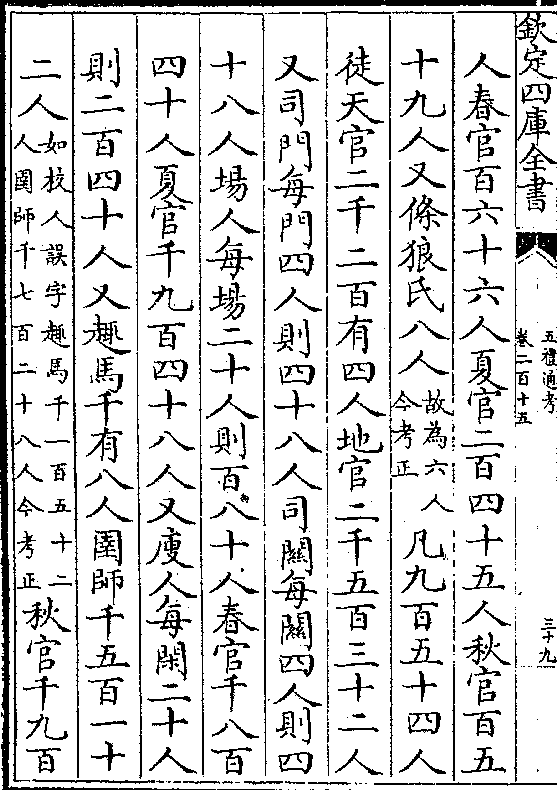 欽定四庫全書
五禮通考
卷二百十五
三十九
人春官百六十六人夏官二百四十五人秋官百五
十九人又條狼氏八人故為六人今考正凡九百五十四人
徒天官二千二百有四人地官二千五百三十二人
又司門每門四人則四十八人司關每關四人則四
十八人場人每場二十人則百八十人春官千八百
四十人夏官千九百四十八人又廋人每閑二十人
則二百四十人又趣馬千有八人圉師千五百一十
二人如校人誤字趣馬千一百五十二人圉師千七百二十八人今考正秋官千九百